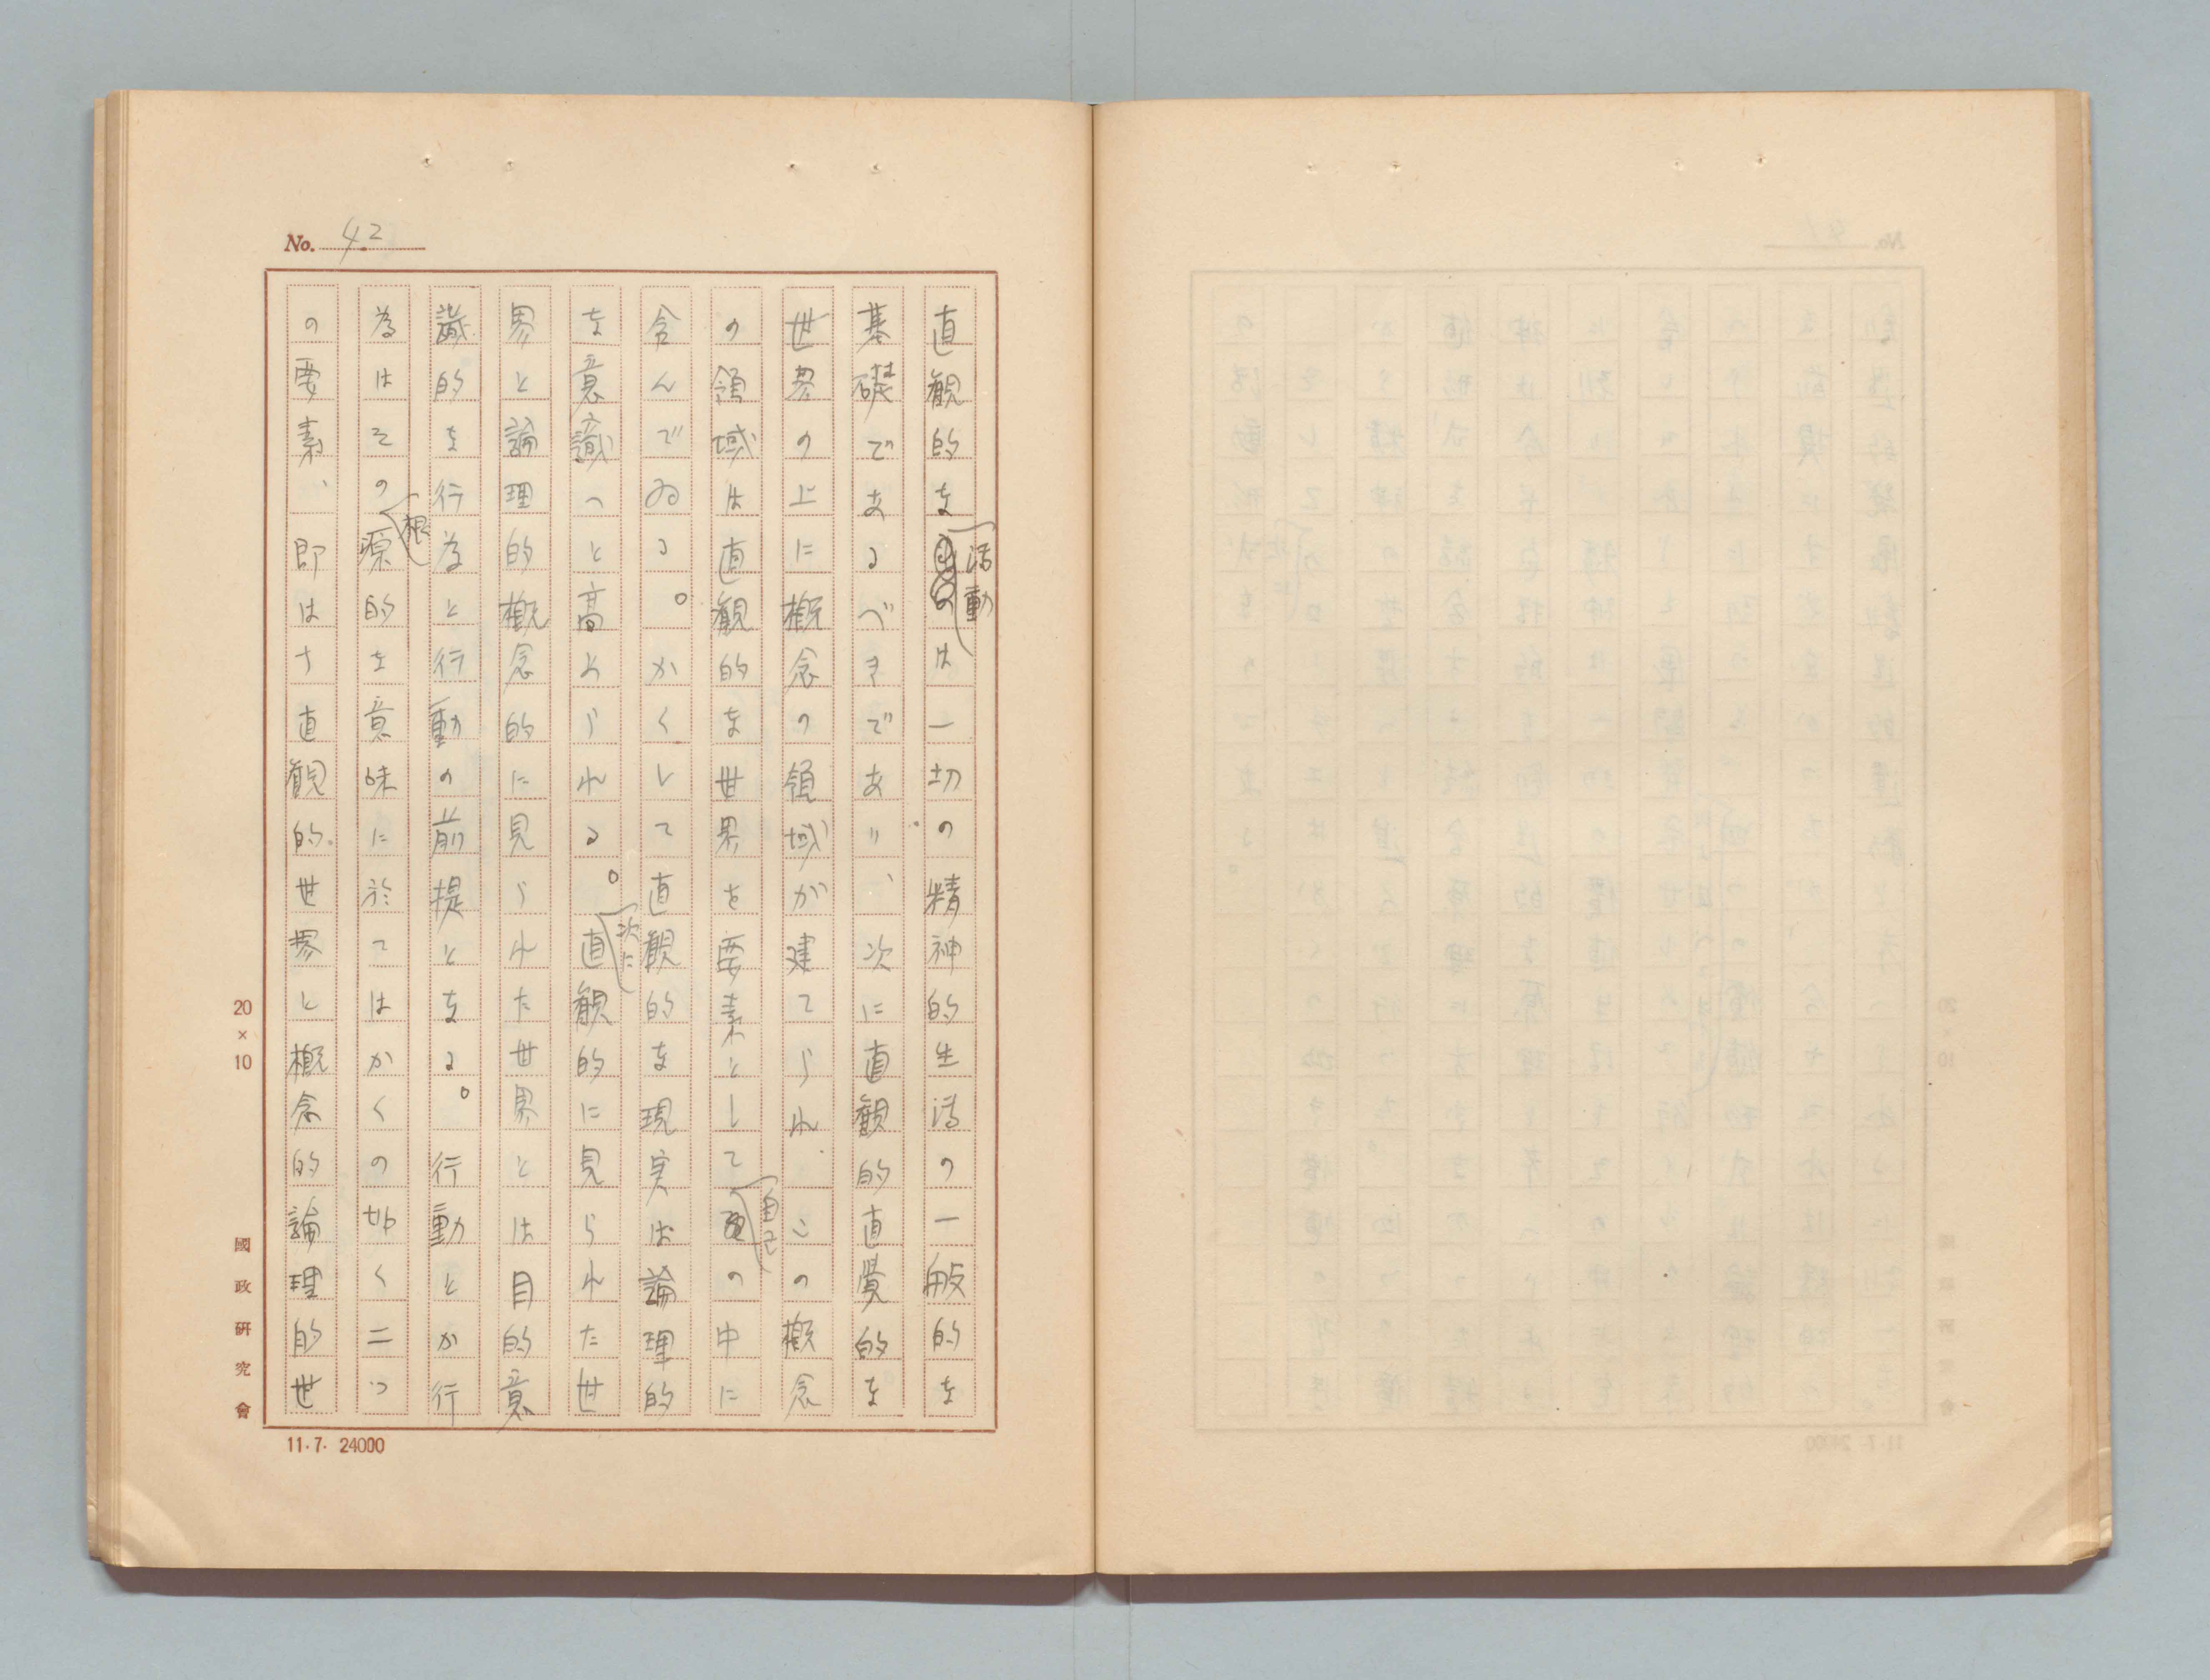 No. 42
直観的な活動は一切の精神的生活の一般的な
基礎であるべきであり、次に直観的直覚的な
世界の上に概念の領域が建てられこの概念
の領域は直観的な世界を要素として自己の中に
含んでゐる。かくして直観的な現実は論理的
な意識へと高められる。次に直観的に見られた世
界と論理的概念的に見られた世界とは目的意
識的な行為と行動の前提となる。行動とか行
為はその根源的な意味に於てはかくの如く二つ
の要素、即はち直観的世界と概念的論理的世
20×10
國政研究會
11.7. 24000